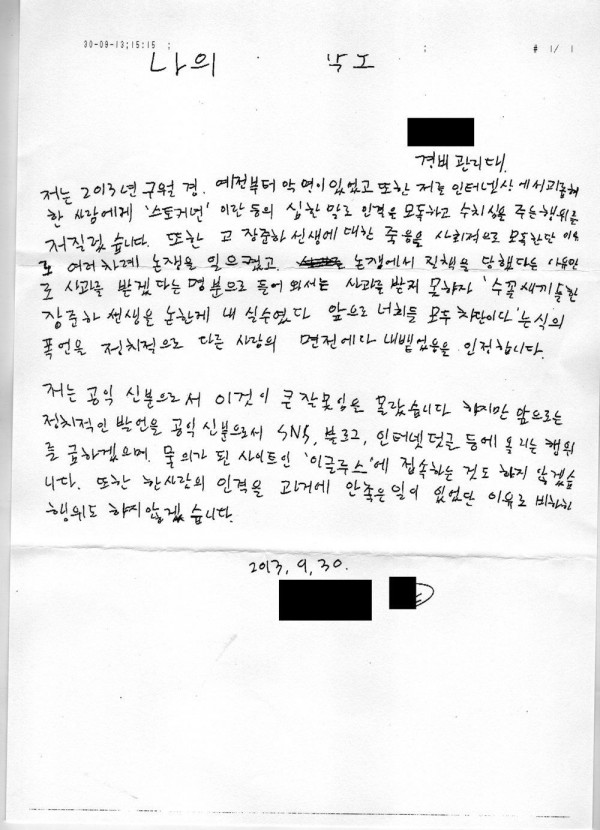 30-09-13;15:15 ; ; # 1/ 1
나의 각오
경비 관리대.
저는 2013년 구월 경. 예전부터 악연이 있었고 또한 저를 인터넷상에서
한 사람에게 '스토커넌' 이란 등의 심한 말로 인격을 모독하고 수치심을 주는 행위를
저질렀습니다. 또한 고 장준하 선생에 대한 죽음을 사회적으로 모독한단 이유
로 여러차례 논쟁을 일으켰고. 논쟁에서 질책을 당했다는 사유만
로 사과를 받겠다는 명분으로 들어 와서는 사과를 받지 못하자 '수꼴새끼들한
장준하 선생을 논한게 내 실수였다 앞으로 너희들 모두 차단이다'는 식의
폭언을 정치적으로 다른 사람의 면전에다 내뱉었음을 인정합니다.
저는 공익 신분으로서 이것이 큰 잘못임을 몰랐습니다 하지만 앞으로는
정치적인 발언을 공익 신분으로서 SNS, 블로그, 인터넷 덧글 등에 올리는 행위
를 금하겠으며, 물의가 된 사이트인 '이글루스'에 접속하는 것도 하지 않겠습
니다. 또한 한사람의 인격을 과거에 안좋은 일이 있었단 이유로 비하한
행위도 하지않겠습니다.
2013, 9, 30.